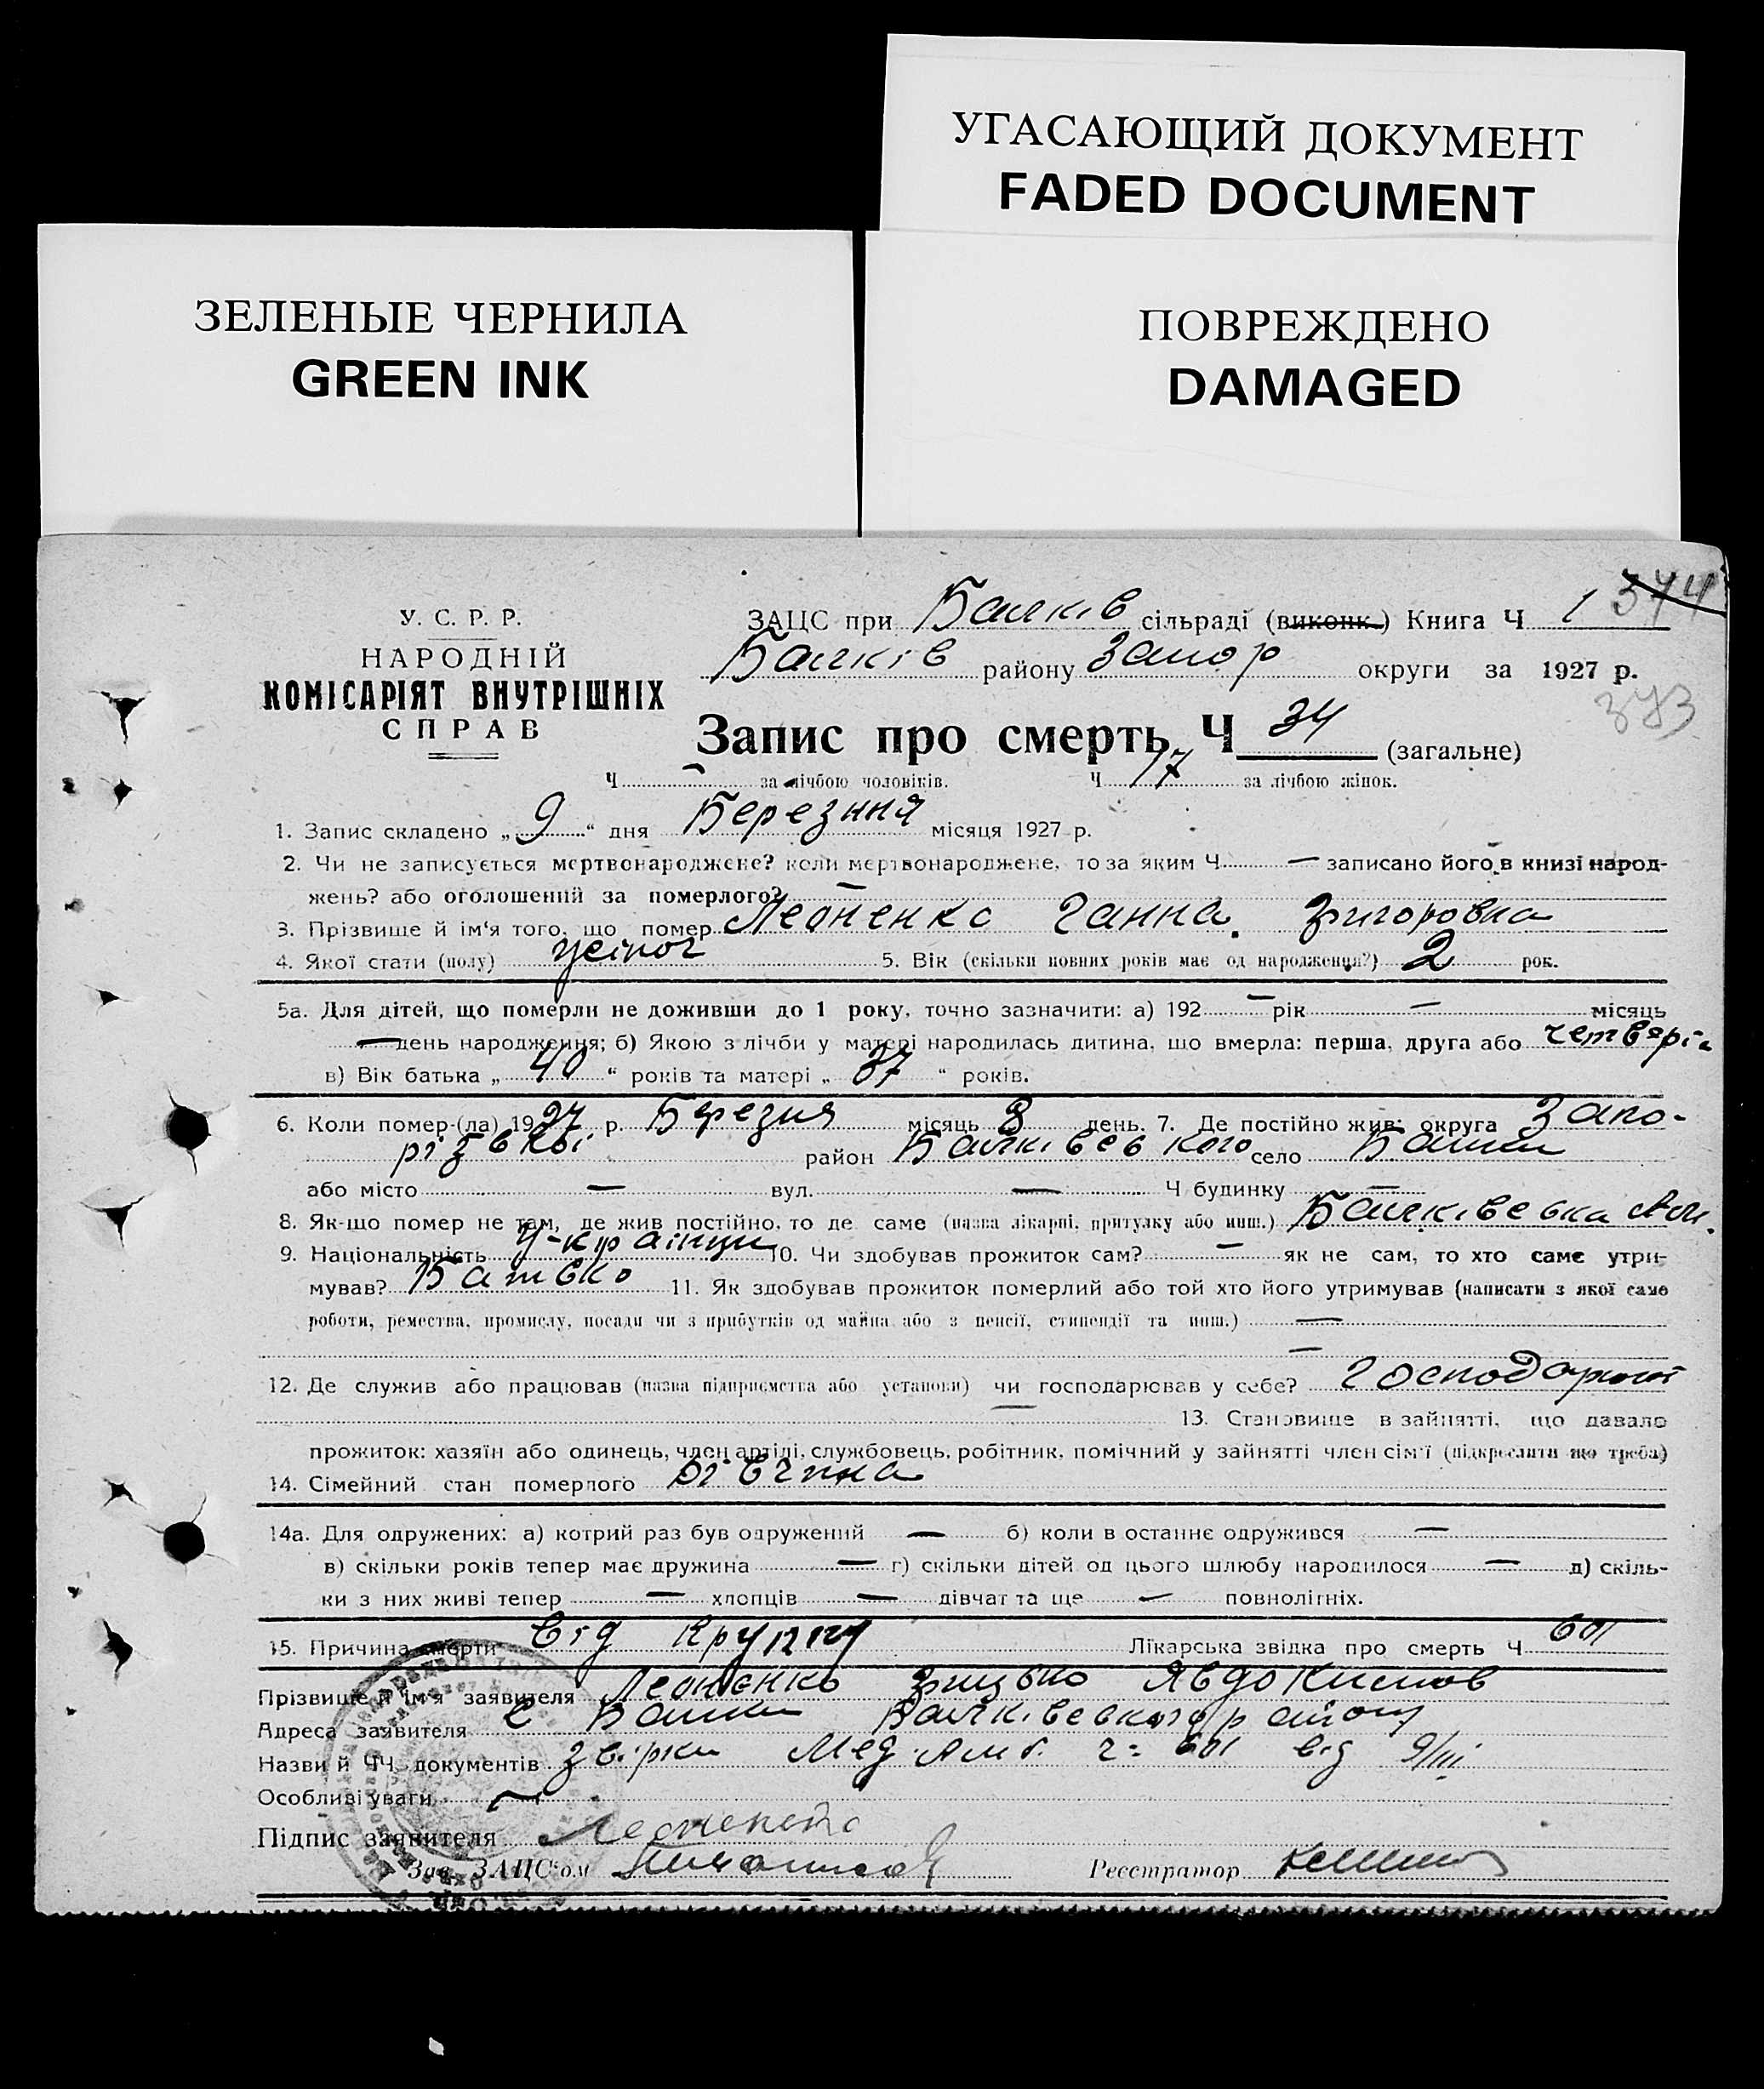 УГАСАЮЩИЙ ДОКУМЕНТ
FADED DOCUMENT
ЗЕЛЕНЫЕ ЧЕРНИЛА
GREEN INK
ПОВРЕЖДЕНО
DAMAGED
374
У. С. Р. Р.
НАРОДНІЙ
КОМІСАРІЯТ ВНУТРІШНІХ
СПРАВ
ЗАЦС при Балків сільраді (виконк.) Книга Ч 1
Балків району Запор округи за 1927 р.
373
Запис про смерть Ч 34 (загальне)
Ч - за лічбою чоловіків. Ч 17 за лічбою жінок.
1. Запис складено „ 9 “ дня Березння місяця 1927 р.
2. Чи не записується мертвонароджене? коли мертвонароджене, то за яким Ч — записано його в книзі народ-
жень? або оголошений за померлого? —
3. Прізвище й ім'я того, що помер Леоненко Ганна. Григоровна
4. Якої стати (полу) жіноч 5. Вік (скільки повних років має од народження?) 2 рок.
5а. Для дітей, що померли не доживши до 1 року, точно зазначити: а) 192 — рік — місяць
— день народження; б) Якою з лічби у матері народилась дитина, що вмерла: перша, друга або
в) Вік батька „ 40 “ років та матері „ 37 “ років.
6. Коли помер (ла) 1927 р. Березня місяць 8 день. 7. Де постійно жив: округа Запо-
різької район Балківського село Балки
або місто — вул. — Ч будинку —
8. Як-що помер не там, де жив постійно, то де саме (назва лікарні, притулку або инш.)
9. Національність У-країнци 10. Чи здобував прожиток сам? — як не сам, то хто саме утри-
мував? Батько 11. Як здобував прожиток померлий або той хто його утримував (написати з якої саме
роботи, ремества, промислу, посади чи з прибутків од майна або з пенсії, стипендії та инш.) —
—
12. Де служив або працював (назва підприємства або установи) чи господарював у себе?
— 13. Становище в зайнятті, що давало
прожиток: хазяїн або одинець, член артілі, службовець, робітник, помічний у зайнятті член сім'ї (підкреслити що треба)
14. Сімейний стан померлого дівчина
14а. Для одружених: а) котрий раз був одружений — б) коли в останнє одружився —
в) скільки років тепер має дружина — г) скільки дітей од цього шлюбу народилося — д) скіль-
ки з них живі тепер — хлопців — дівчат та ще — повнолітніх.
15. Причина смерти Від крупну Лікарська звідка про смерть Ч 601
Прізвище й ім'я заявителя Леоненко Грицько Явдокимов
Адреса заявителя С Балки Балківського району
Назви й ЧЧ документів Мед. Амб. ч= 601 від 9/III
Особливі уваги —
Підпис заявителя Леоненко
Зав. ЗАЦС'ом Реєстратор